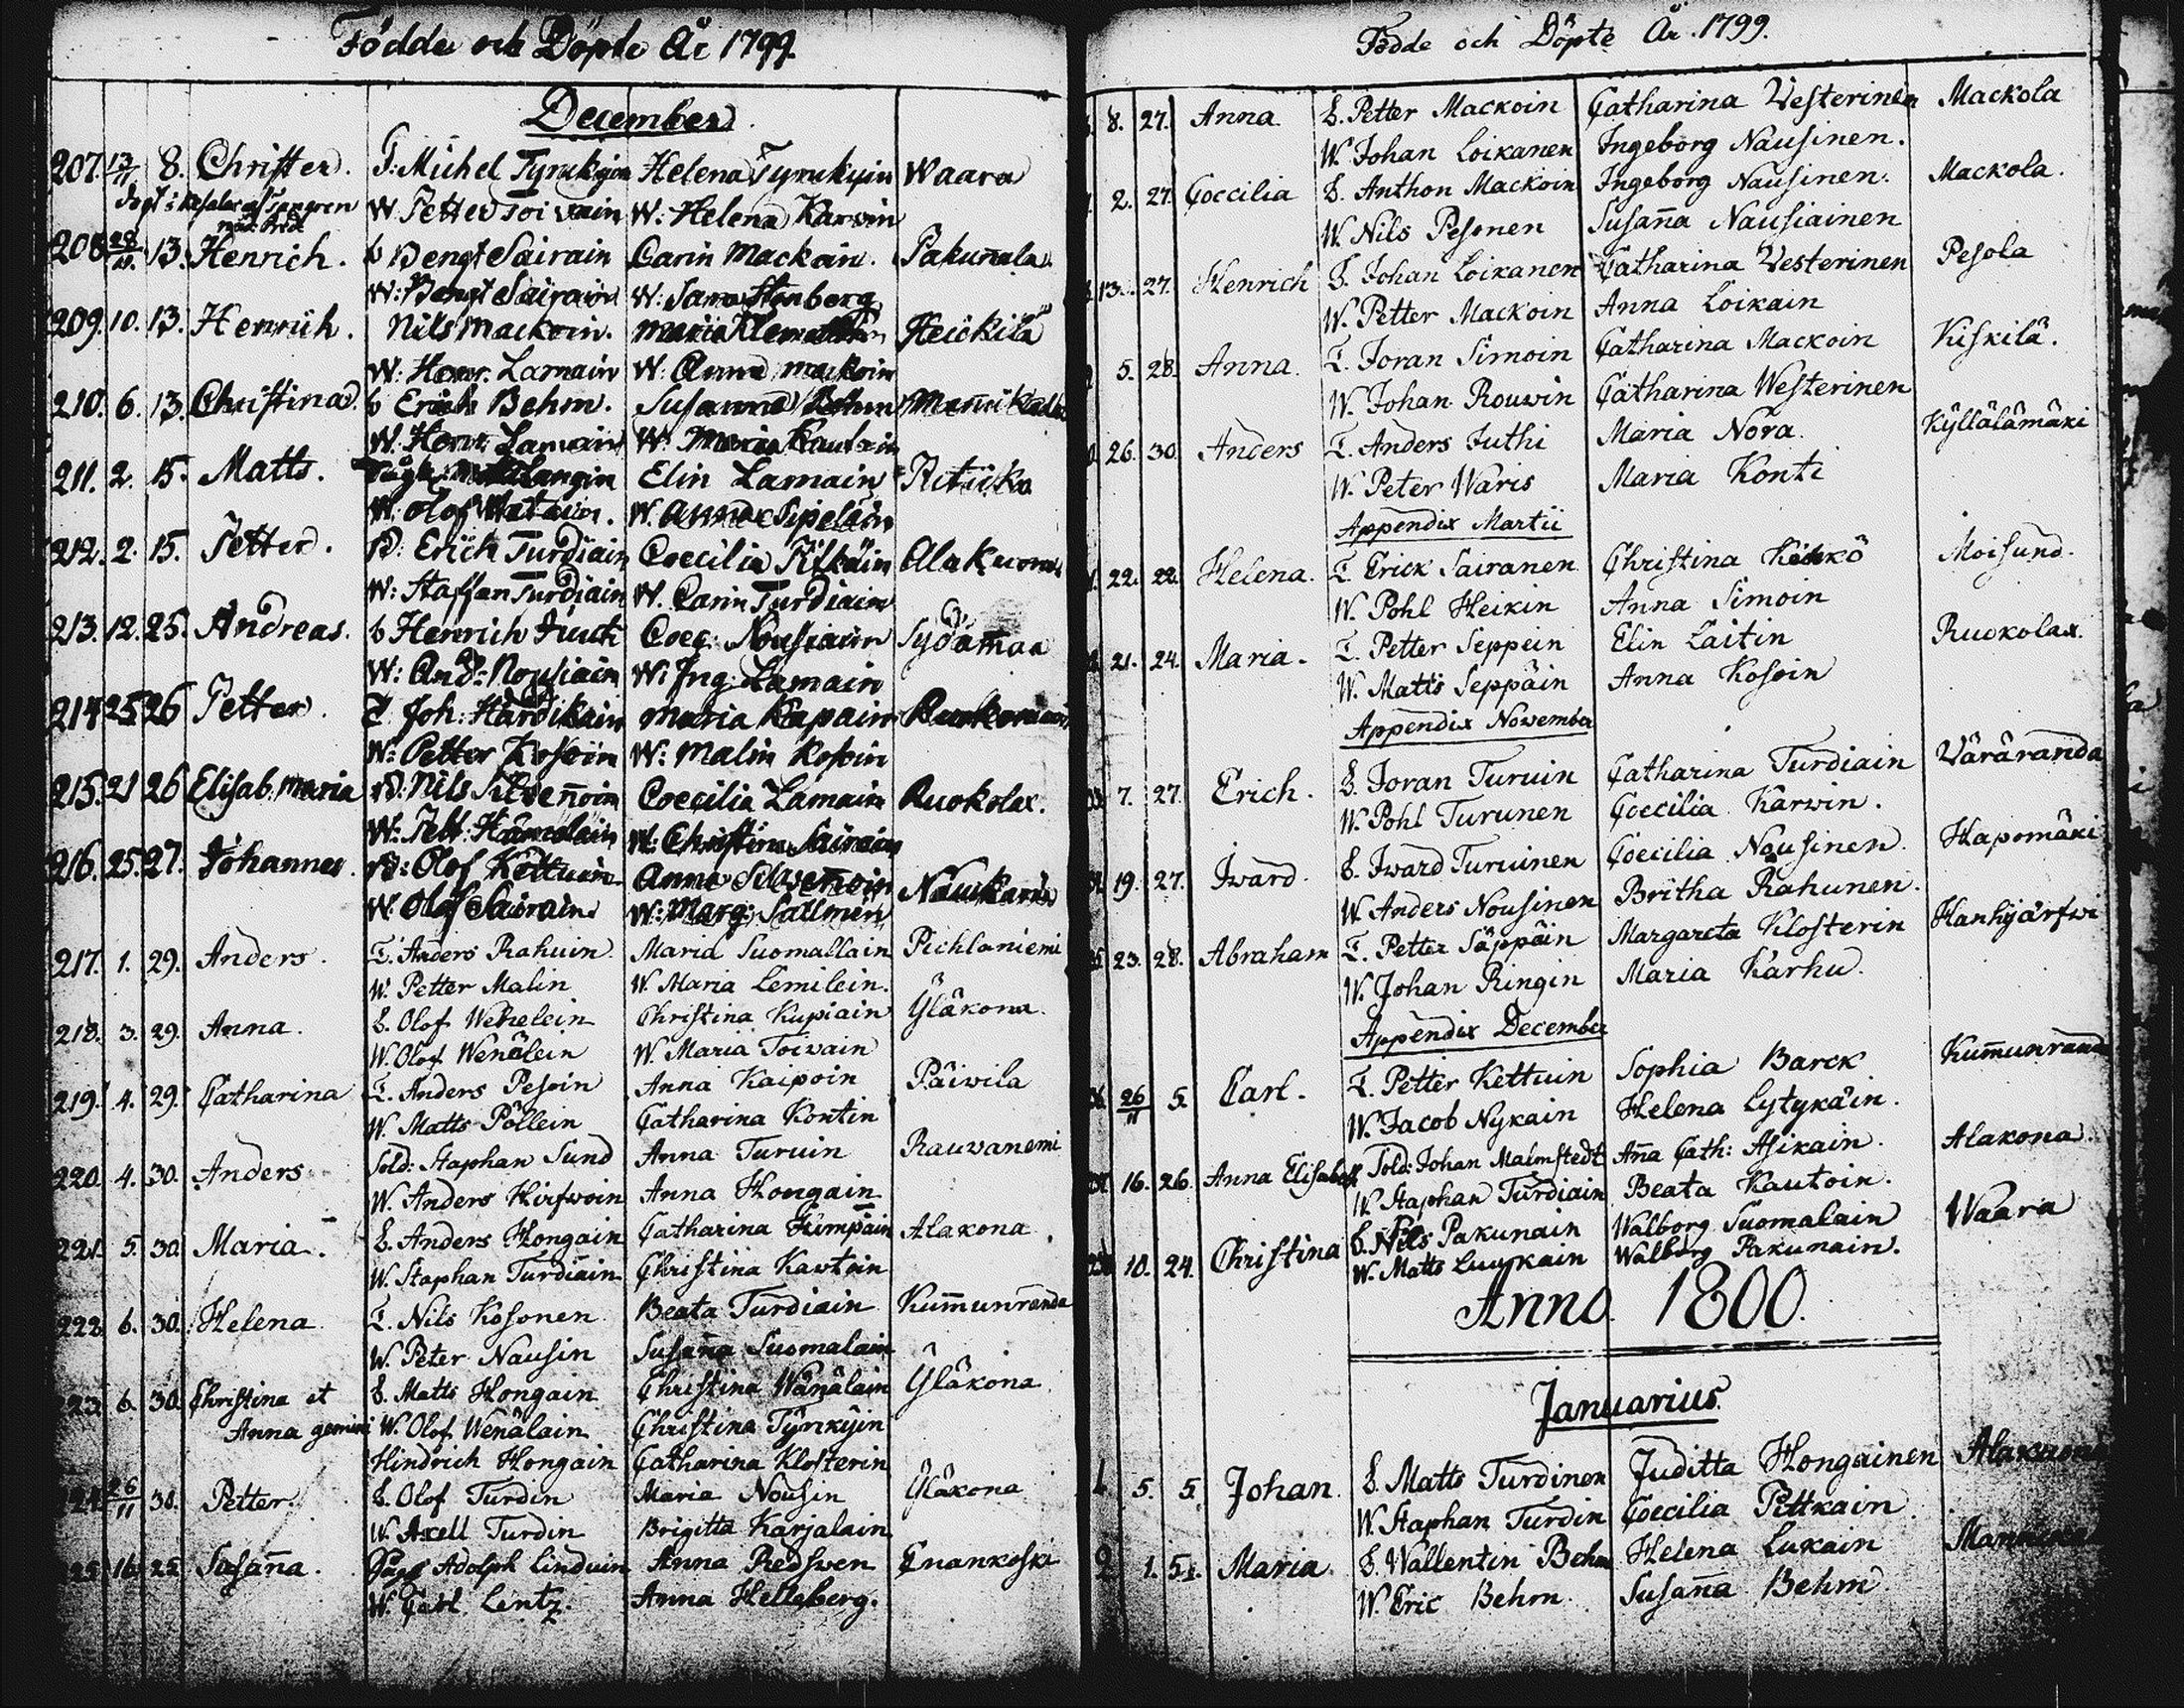 Födde och Döpte År 1799.
December
207. 13/11 8. Christer. T: Michel Tyrnkyin Helena Tyrnkyin Waara
W Petter Toivain W: Helena Karvin
208. 28/11 13. Henrich. b Bengt Sairain Carin Mackoin. Pakunala
W: Bengt Sairain W: Sara Stenberg
209. 10. 13. Henrich. Nils Mackoin. Maria Heickilä
W: Henr. Lamain W: Anna Mackoin
210. 6. 13. Christina. b Erich Behm. Susanna Behm
W. Henr. Lamain W: Maria Kautoin
211. 2. 15. Matts. Elin Lamain Riticka
W: Olof W. Anna Sipeläin
212. 2. 15. Petter. D: Erich Turdiain Coecilia Pitkäin Alakuona
W: Staffan Turdiain W. Carin Turdiain
213. 12. 25. Andreas. b Henrich Juuti Coec: Nousiain Sydämaa
W: And: Nousiain W: Ing: Lamain
214 25 26 Petter. T. Joh: Härdikäin Maria Kapain
W: Petter Kosoin W: Malin Kosoin
215. 21 26 Elisab. Maria D: Nils Silvennoin Coecilia Lamain Ruokolax.
W: Pett: Hämäläin W: Christina Sairain
216. 25. 27. Johannes. D: Olof Kettuin Anna Silvennoin
W: Olof Sairain W: Marg: Sallmén
217. 1. 29. Anders. T. Anders Rahuin. Maria Suomallain Pichlaniemi
W. Petter Malin W. Maria Lemilein.
218. 3. 29. Anna. b. Olof Weħelein Christina Kupiain Yläkona.
W. Olof Wenälein W. Maria Toivain
219. 4. 29. Catharina T. Anders Pesoin Anna Kaipoin Päivila
W. Matts Pöllein Catharina Kontin
220. 4. 30. Anders Sold: Staphan Sund Anna Turuin Rauvanemi
W. Anders Hirfwoin Anna Hongain
221. 5. 30. Maria. b. Anders Hongain Catharina Kumpäin Alakona.
W. Staphan Turdiain Christina Kawtoin
222. 6. 30. Helena. T. Nils Kosonen Beata Turdiain Kum̄unranda
W. Peter Nausin Susan̄a Suomalain
223. 6. 30. Christina et b. Matts Hongain Christina Wänälain Yläkona.
Anna gemini W. Olof Wenälain Christina Tyrnkyin
Hindrich Hongain Catharina Klosterin
224. 26/11 30. Petter. b. Olof Turdin Maria Nousin Yläkona
W. Axell Turdin Brigitta Karjalain
225. 16. 25. Susan̄a. Adolph Linduin Anna Redswen Enankoski
W. Carl Lentz. Anna Hellsberg.
Födde och Döpte År. 1799.
8. 27. Anna b. Petter Mackoin Catharina Vesterinen Mackola
W. Johan Loikanen Ingeborg Nausinen.
2. 27. Coecilia b. Anthon Mackoin Ingeborg Nausinen. Mackola.
W. Nils Pesonen Susan̄a Nausiainen
13. 27. Henrich b. Johan Loikanen Catharina Vesterinen Pesola
W. Petter Mackoin Anna Loikain
5. 28. Anna. T. Joran Simoin Catharina Mackoin Kiskilä.
W. Johan Rouwin Catharina Westerinen
26. 30. Anders T. Anders Juthi Maria Nora. Kyllälämäki
W. Peter Waris Maria Konti
Appendix Martii
22. 22. Helena. T. Erick Sairanen Christina Moisund.
W. Pohl Heikin Anna Simoin
21. 24. Maria. T. Petter Seppein Elin Laitin Ruokolax.
W. Matts Seppäin Anna Kosoin
Appendix November
7. 27. Erich. b. Joran Turuin Catharina Turdiain Väräranda
W. Pohl Turunen Coecilia Karwin.
19. 27. Iward. b. Iward Turuinen Coecilia Nousinen. Hapomäki
W. Anders Nousinen Britha Rahunen.
23. 28. Abraham T. Petter Säppäin Margareta Klosterin Hanhijärfwi
W. Johan Ringin Maria Karhu.
Appendix December
26/11 5. Carl. T. Petter Kettuin Sophia Barck Kum̄unrand
W. Jacob Nykain Helena Lytykäin.
16. 26. Anna Elisabeth Sold: Johan Malmstedt An̄a Cath: Asikain. Alakona.
W. Staphan Turdiain Beata Kautoin.
10. 24. Christina b. Nils Pakunain Walborg Suomalain Waara
W. Matts Luukain Walborg Pakunain.
Anno. 1800.
Januarius.
1. 5. 5. Johan. b. Matts Turdinen Juditta Hongainen Alakuona
W. Staphan Turdin Coecilia Pittkain
2 1. 5. Maria. b. Wallentin Behm Helena Lukain
W. Eric Behm. Susan̄a Behm